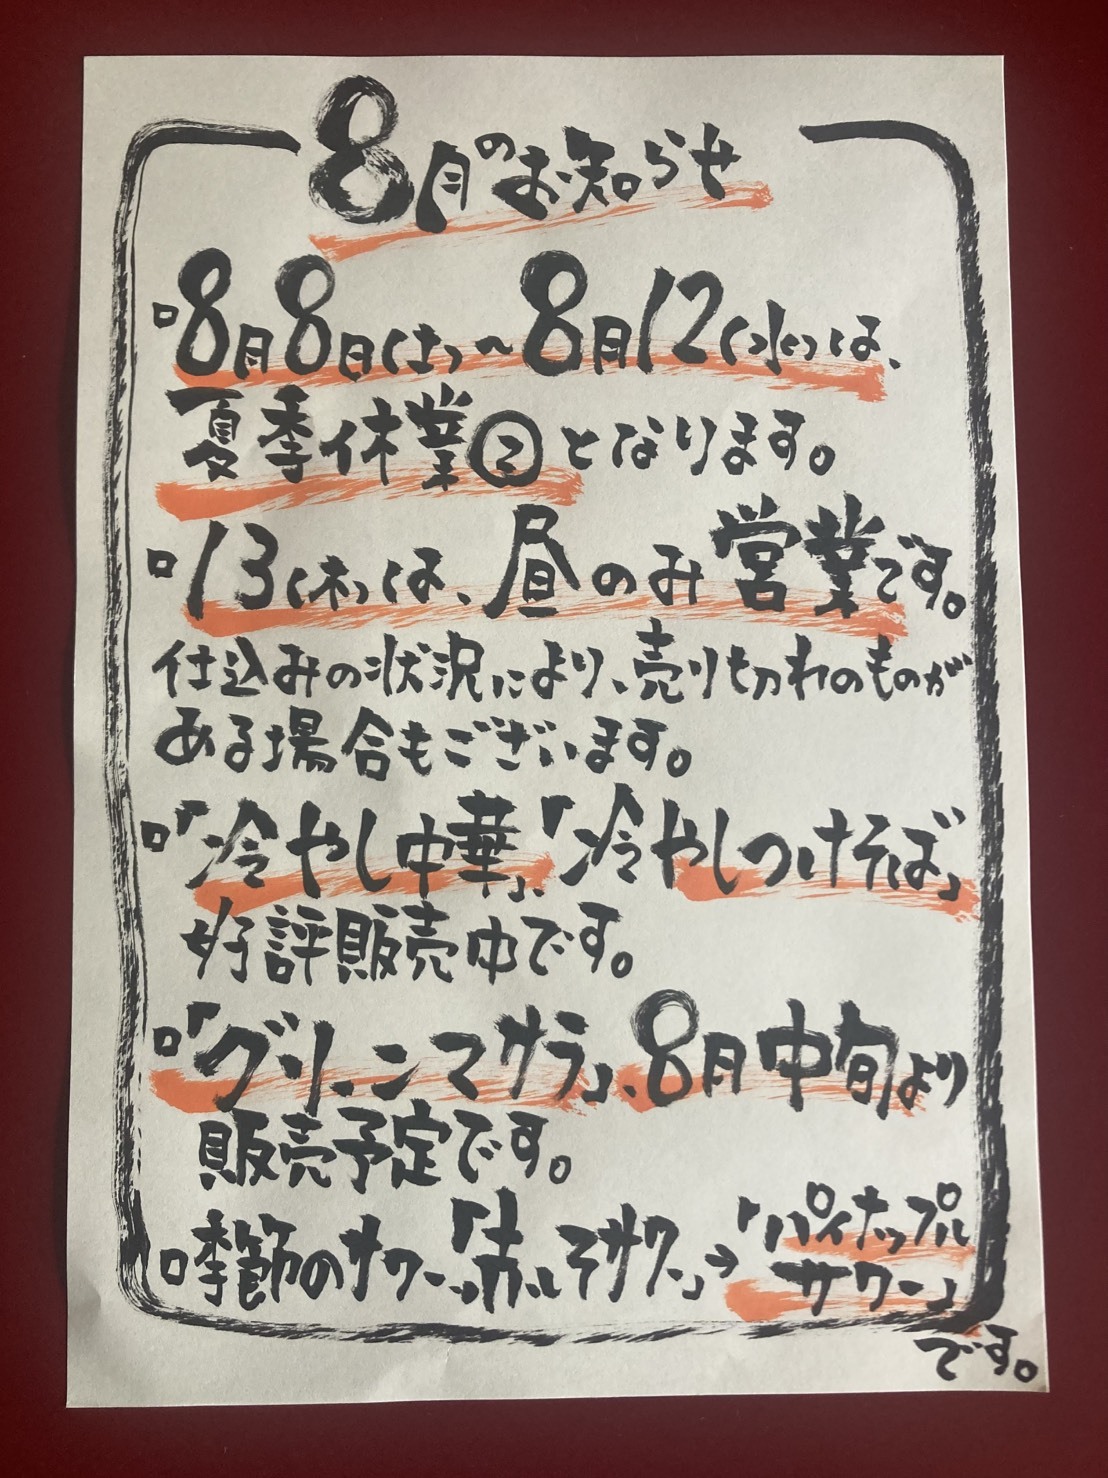 8月のお知らせ
▫8月8日(土)〜8月12(水)は、
夏季休業②となります。
▫13(木)は、昼のみ営業です。
仕込みの状況により、売り切れのものが
ある場合もございます。
▫「冷やし中華」、「冷やしつけそば」
好評販売中です。
▫「グリーンマサラ」、8月中旬より
販売予定です。
▫季節のサワー、「赤しそサワー」→「パイナップル
サワー」
です。